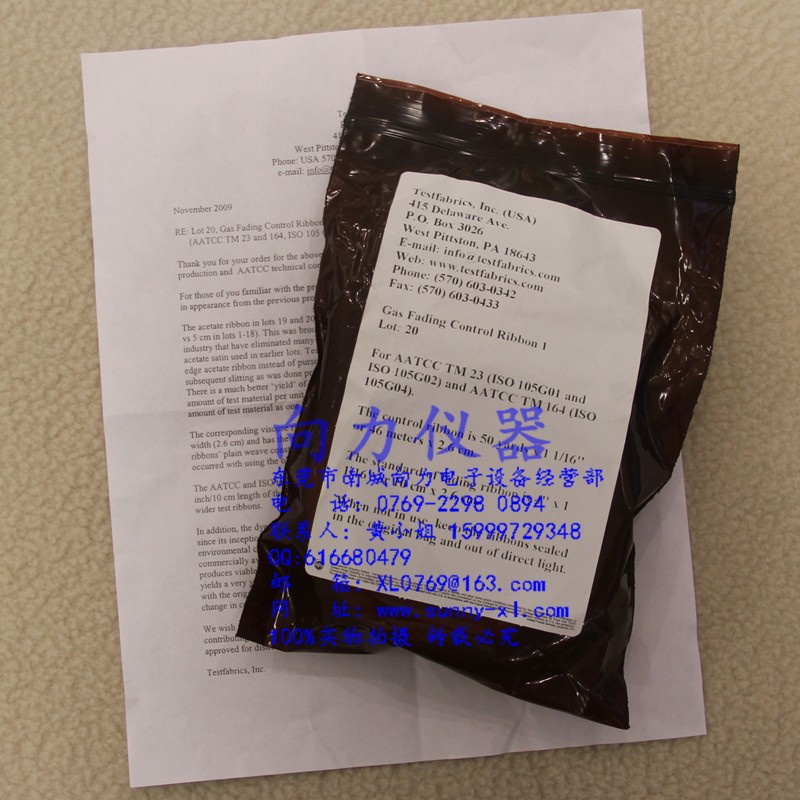 West Pittston
Phone: USA 570
e-mail: info@
November 2009
RE: Lot 20, Gas Fading Control Ribbon
(AATCC TM 23 and 164, ISO 105 G
Thank you for your order for the above
production and AATCC technical con
For those of you familiar with the pr
in appearance from the previous pro
The acetate ribbon in lots 19 and 20
vs 5 cm in lots 1-18). This was brou
industry that have eliminated many
acetate satin used in earlier lots. Tes
edge acetate ribbon instead of purs
subsequent slitting as was done pr
There is a much better 'yield' of
amount of test material per unit
amount of test material as one
The corresponding visc
width (2.6 cm) and has the
ribbons' plain weave const
occurred with using the o
The AATCC and ISO
inch/10 cm length of th
wider test ribbons.
In addition, the dy
since its incepti
environmental c
commercially av
produces viable
yields a very
with the orig
change in c
We wish
contributing
approved for dis
Testfabrics, Inc.
Testfabrics, Inc. (USA)
415 Delaware Ave.
P.O. Box 3026
West Pittston, PA 18643
E-mail: info@testfabrics.com
Web: www.testfabrics.com
Phone: (570) 603-0342
Fax: (570) 603-0433
Gas Fading Control Ribbon 1
Lot: 20
For AATCC TM 23 (ISO 105G01 and
ISO 105G02) and AATCC TM 164 (ISO
105G04).
The control ribbon is 50 yards x 1 1/16"
46 meters x 2.6 cm.
The standard of fading ribbon is 4" x 1
When not in use, keep ribbons sealed
in the original bag and out of direct light.
向力仪器
东莞市南城向力电子设备经营部
电 话: 0769-2298 0894
联系人: 黄小姐 15999729348
QQ:616680479
邮 箱: XL0769@163.com
网 址: www.sunny-xl.com
100%实物拍摄 转载必究